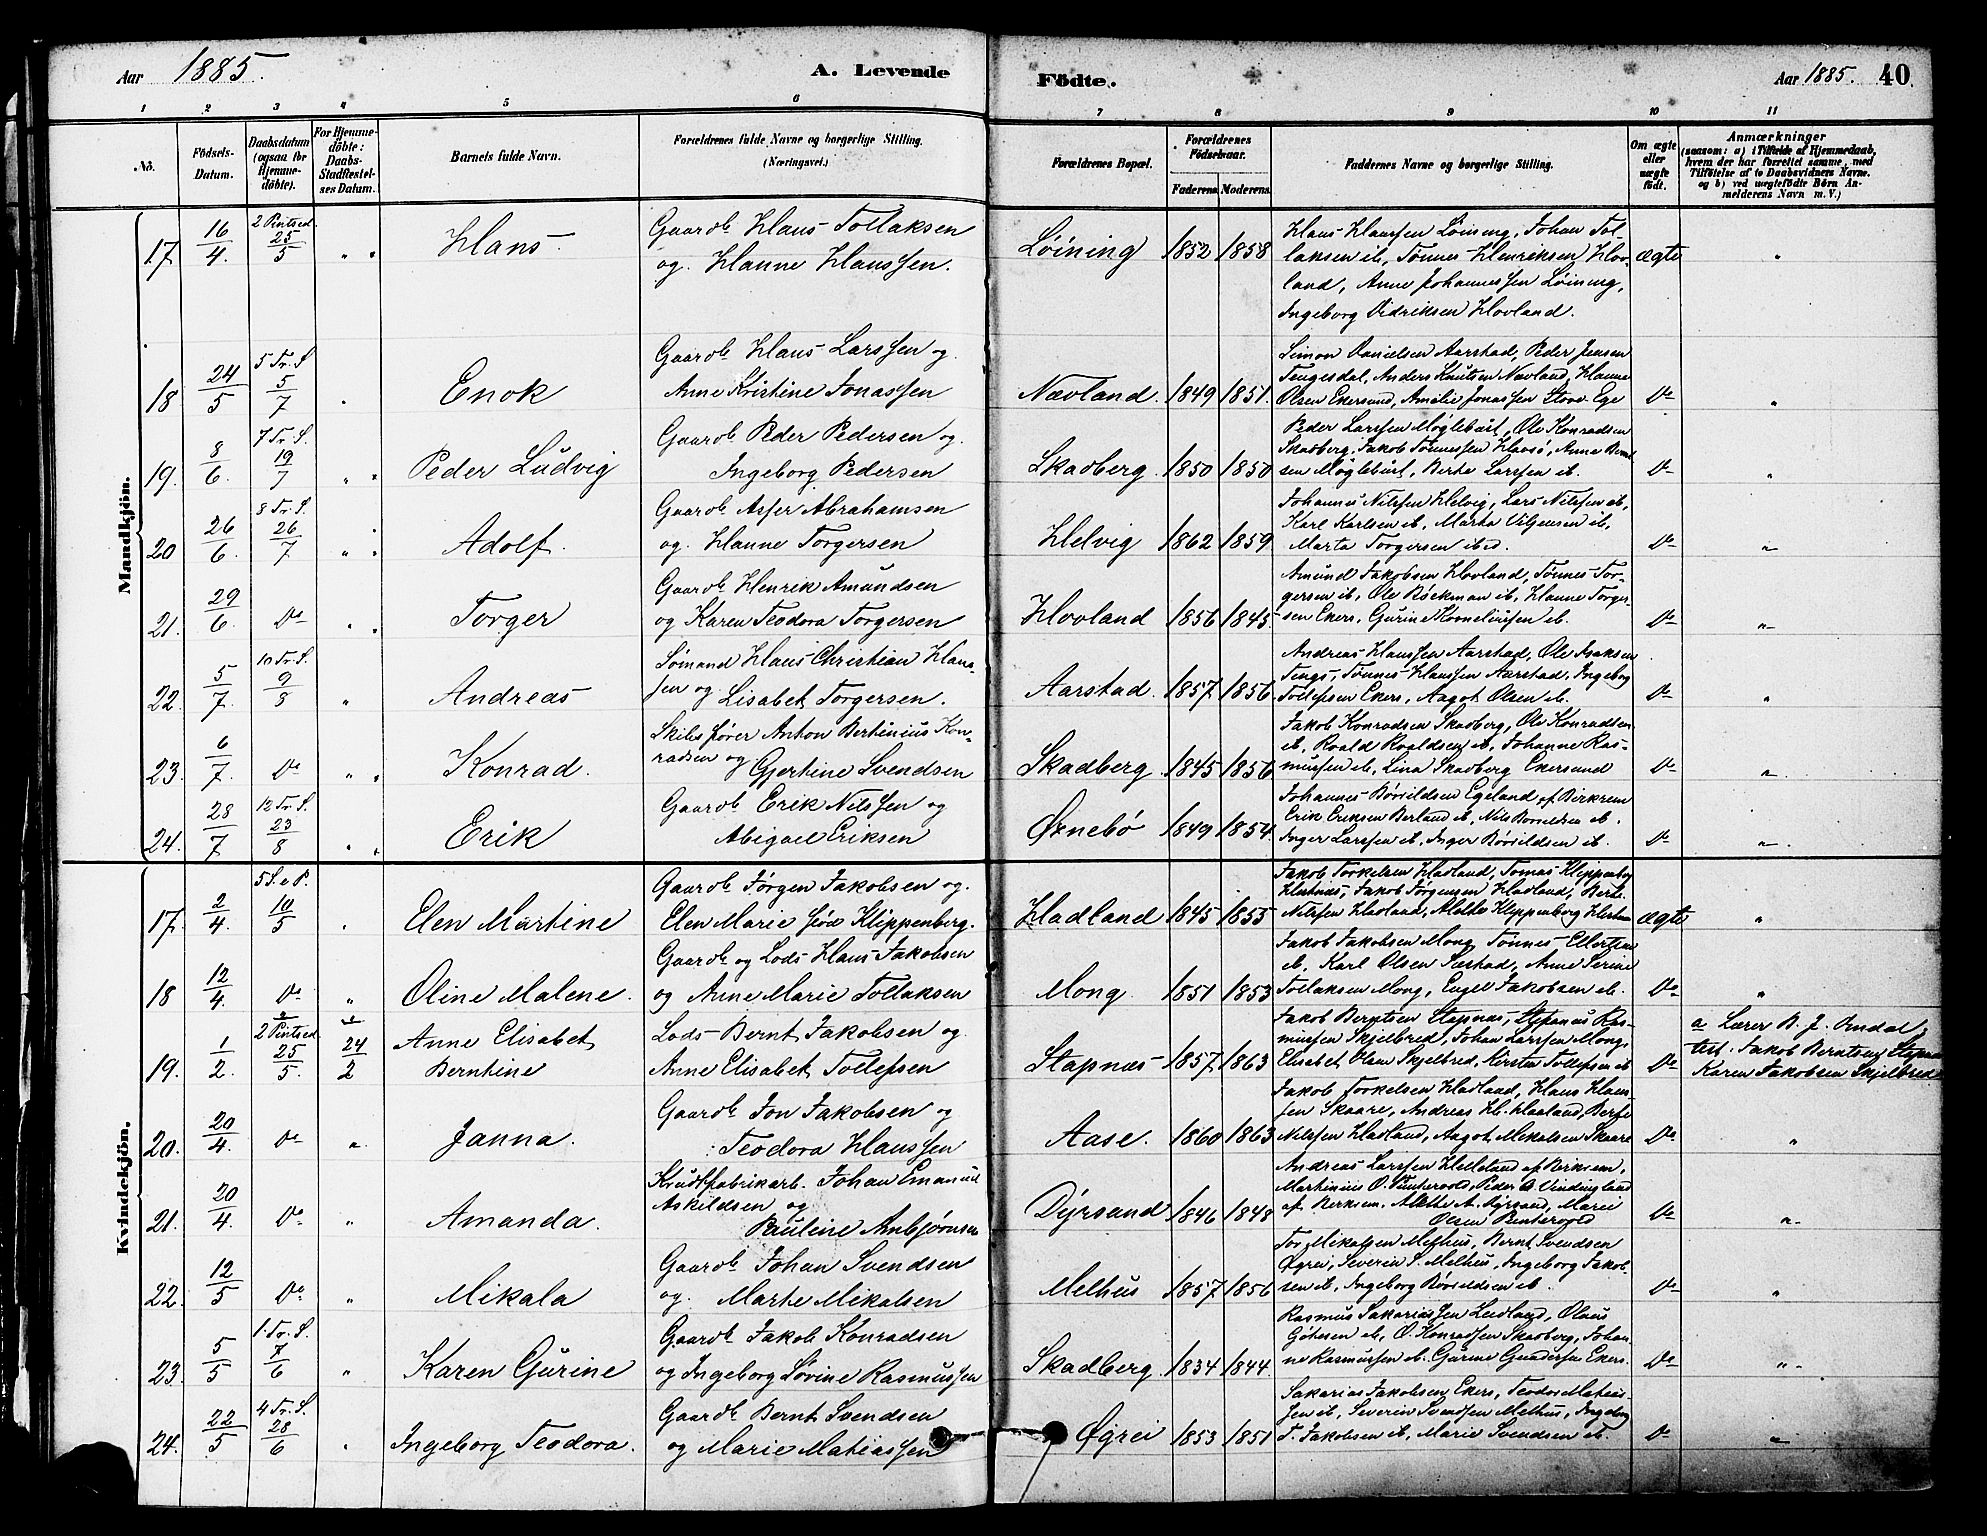 Aar 1885. A. Levende
Födte. Aar 1885. 40
1 2 3 4 5 6 7 8 9 10 11
No.
Födsels-Datum.
Daabsdatum (ogsaa for Hjemmedöbte).
For Hjemmedöbte: Daabs-Stadfæstelses Datum.
Barnets fulde Navn.
Forældrenes fulde Navne og borgerlige Stilling. (Næringsvei.)
Forældrenes Bopæl.
Forældrenes Födselsaar.
Faderens. Moderens.
Faddernes Navne og borgerlige Stilling.
Om ægte eller uægte födt.
Anmærkninger
(saasom: a) i Tilfælde af Hjemmedaab, hvem der har forrettet samme, med Tilföielse af to Daabsvidners Navne. og b) ved uægtefödte Börn Anmelderens Navn m. V.)
Mandkjön.
17. 16/4. 2 Pintsed. 25/5 " " Hans. Gaardb. Hans Tollaksen og Hanne Hanssen. Löining 1852 1858 Hans Hanssen Löining, Johan Tollaksen ib, Tönnes Henriksen Hovland, Anne Johannessen Löining, Ingeborg Didriksen Hovland. ægte "
18. 24/5 5 Tr. S. 5/7 " Enok Gaardb. Hans Larssen og Anne Kristine Jonassen Nævland. 1849 1851. Simon Danielsen Aarstad, Peder Jensen Tengesdal, Anders Knutsen Nævland, Hanna Olsen Ekersund, Amalie Jonassen Store-Ege Do "
19. 8/6. 7 Tr. S. 19/7 " " Peder Ludvig Gaardb. Peder Pedersen og Ingeborg Pedersen Skadberg. 1850 1850 Peder Larssen Möglebust, Ole Konradsen Skadberg, Jakob Tönnessen Havsö, Anne Berntsen Möglebust, Berte Larssen ib. Do "
20 26/6. 8 Tr. S. 26/7 " " Adolf. Gaardb. Asser Abrahamsen og Hanne Torgersen Helvig 1862 1859 Johannes Nilssen Helvig, Lars Nilssen ib, Karl Karlsen ib, Marta Viljensen ib, Marta Torgersen ibid. Do "
21. 29/6. Do " " Torger Gaardb. Henrik Amundsen og Karen Teodora Torgersen Hovland 1856 1845. Amund Jakobsen Hovland, Tönnes Torgersen ib, Ole Böckman ib, Hanne Torgersen Ekers. Gurine Korneliussen ib. Do "
22. 5/7. 10 Tr. S. 9/8 " Andreas Sömand Hans Christian Hanssen og Lisabet Torgersen. Aarstad. 1857. 1856 Andreas Hanssen Aarstad, Ole Isaksen Tengs, Tönnes Hanssen Aarstad, Ingeborg Tollefsen Ekers, Aagot Olsen ib. Do "
23. 6/7. Do " " Konrad. Skibsförer Anton Bertinius Konradsen og Gjertine Svendsen Skadberg 1845 1856 Jakob Konradsen Skadberg, Ole Konradsen ib, Roald Roaldsen ib, Johanne Rasmussen ib, Lina Skadberg Ekersund Do "
24. 28/7 12 Tr. S. 23/8 " " Erik Gaardb. Erik Nilssen og Abigael Eriksen Ørnebö 1849 1854. Johannes Börildsen Egeland af Birkrem Erik Eriksen Berland ib, Nils Börildsen ib. Inger Larssen ib, Inger Börildsen ib. Do "
Kvindekjön.
17. 2/4. 5 S. e. P. 10/5 " Elen Martine Gaardb. Jörgen Jakobsen og Elen Marie Klippenberg. Hadland 1845 1855 Jakob Torkelsen Hadland, Tomas Klippenberg Hestnæs, Jakob Jörgensen Hadland, Berte Nilssen Hadland, Klippenberg ægte "
18 12/4. Do " Oline Malene. Gaardb og Lods Hans Jakobsen og Anne Marie Tollaksen Mong 1851 1853 Jakob Jakobsen Mong Tönnes Ellertsen ib, Karl Olsen Sæstad, Anne Serine Tollaksen Mong, Engel Jakobsen ib. Do "
19. 1/2. 2 Pintsed. 25/5. 24/2 Anne Elisabet Berntine Lods Bernt Jakobsen og Anne Elisabet Tollefsen Stapnæs 1857. 1863 Jakob Berntsen Stapnæs, Stefanus Rasmussen Skjelbred, Johan Larssen Mong, Elisabet Olsen Skjelbred, Kirsten Tollefsen ib Do a Lærer B. J. Omdal, test. Jakob Berntsen Stapnæs Karen Jakobsen Skjelbred
20. 20/4. Do " Janna. Gaardb. Jon Jakobsen og Teodora Hanssen Aase. 1860 1863 Jakob Torkelsen Hadland, Hans Hanssen Skaare, Andreas H. Hadland, Berte Nilssen Hadland, Aagot Mikalsen Skaare Do "
21. 20/4. Do " Amanda. Krudtfabrikarb. Johan Emanuel Askildsen og Pauline Anbjörnsen Dyrsand 1846 1848 Andreas Larssen Helleland af Birkrem, Martinius O. Punterold, Peder A Vindingland af Birkrem. A. Dyrsand, Marie Olsen Do "
22. 12/5 Do " Mikala Gaardb. Johan Svendsen og Marte Mikalsen Melhus 1857 1856 Tor Mikalsen Melhus, Bernt Svendsen Øgrei, Severin S. Melhus, Ingeborg Jakobsen ib, Ingeborg Börildsen ib. Do "
23. 5/5 1. Tr. S. 7/6 " Karen Gurine Gaardb Jakob Konradsen og Ingeborg Sövine Rasmussen Skadberg 1834 1844. Rasmus Sakariassen Leidland, Olaus Götesen ib, O. Konradsen Skadberg, Johanne Rasmussen ib. Gurine Gundersen Ekers. Do "
24. 22/5 4 Tr. S. 28/6 " Ingeborg Teodora. Gaardb Bernt Svendsen og Marie Matiassen Øgrei 1853 1851 Sakarias Jakobsen Ekers, Teodor Matiassen ib, Severin Svendsen Melhus, Ingeborg T. Jakobsen ib, Marie Svendsen ib. Do "